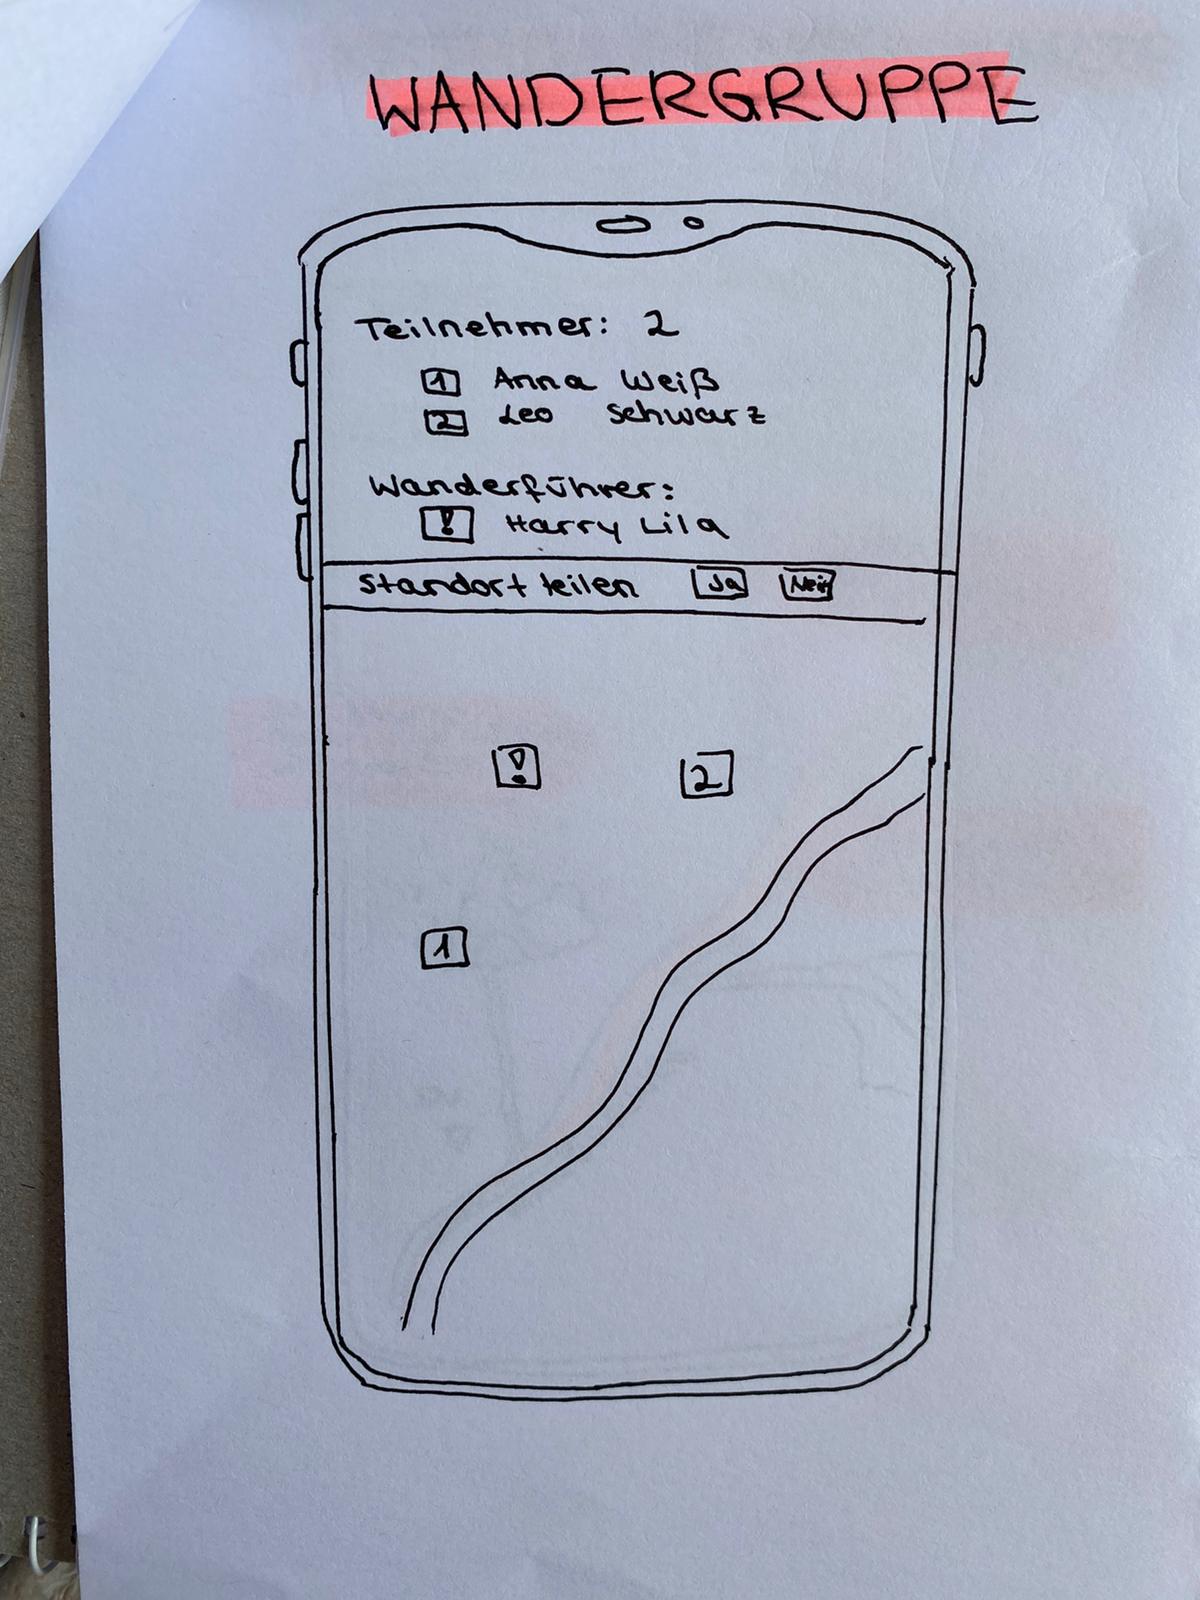 WANDERGRUPPE
Teilnehmer: 2
1 Anna Weiß
2 Leo Schwarz
Wanderführer:
! Harry Lila
Standort teilen Ja Nein
! 2
1